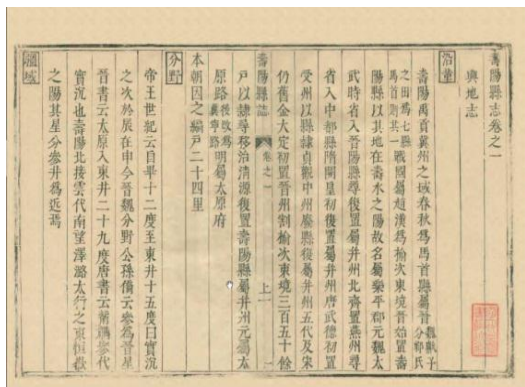 壽陽縣志卷之一
輿地志
沿革
壽陽禹貢冀州之域春秋為馬首縣屬晉魏獻子分祁氏
之田為七縣馬首則其一戰國屬趙漢為榆次東境晉始置壽
陽縣以其地在壽水之陽故名屬樂平郡元魏太
武時省入晉陽縣尋復置屬并州北齊置燕州尋
省入中都縣隋開皇初復置屬并州唐武德初置
受州以縣隸貞觀中州廢縣復屬并州五代及宋
仍舊金大定初置晉州割榆次東境三百五十餘
壽陽縣志 卷之一 上一
戶以隸尋移治清源復置壽陽縣屬并州元屬太
原路後改為冀寧路明屬太原府
本朝因之編戶二十四里
分野
帝王世紀云自畢十二度至東井十五度曰實沉
之次於辰在申今晉魏分野公孫僑云參為晉星
晉書云太原入東井二十九度唐書云觜觿參代
實沉也壽陽北接雲代南望澤潞太行之東恒嶽
之陽其星分參井為近焉
疆域